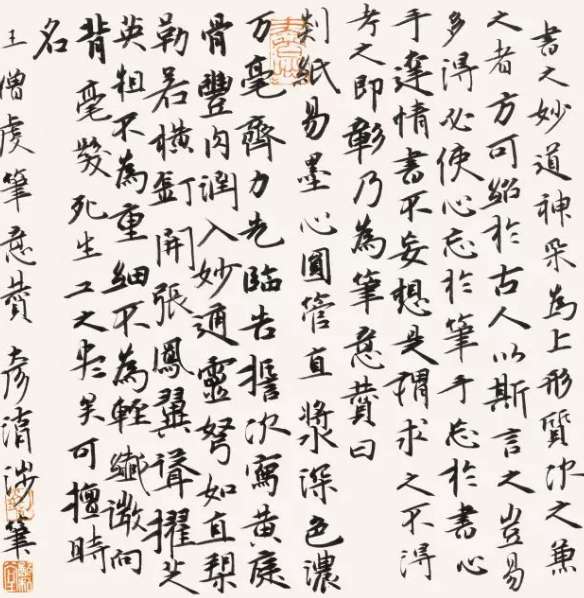 書之妙道神采為上形質次之兼
之者方可紹於古人以斯言之豈易
多得必使心忘於筆手忘於書心
手達情書不妄想是謂求之不得
考之即彰乃為筆意贊曰
剡紙易墨心圓管直漿深色濃
万毫齊力先臨告誓次寫黄庭
骨豐肉潤入妙通靈弩如直槊
勒若橫釘開張鳳翼聳擢芝
英粗不為重細不為輕纖微向
背毫髮死生工之盡矣可擅時
名
王僧虔筆意贊 彦 筆